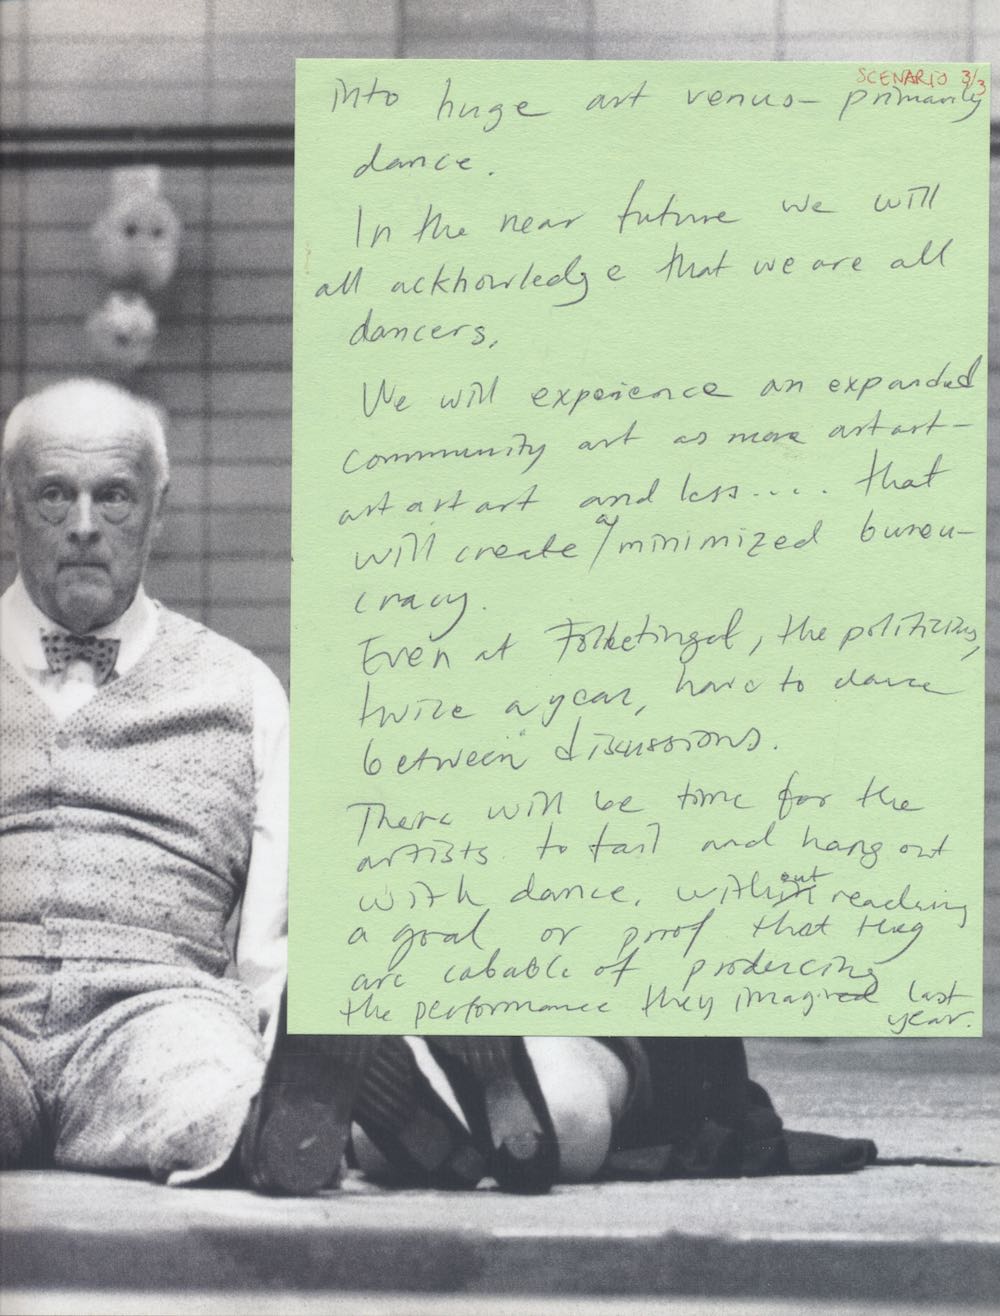 SCENARIO 3/3
into huge art venus- primarily
dance.
In the near future we will
all acknowledge that we are all
dancers.
We will experience an expanded
community art as more artart-
artartart and less.... that
will create a minimized bureau-
cracy.
Even at Folketinget, the politicians,
twice a year, have to dance
between discussions.
There will be time for the
artists to fail and hang out
with dance. without reaching
a goal or proof that they
are cabable of producing
the performance they imagined last
year.